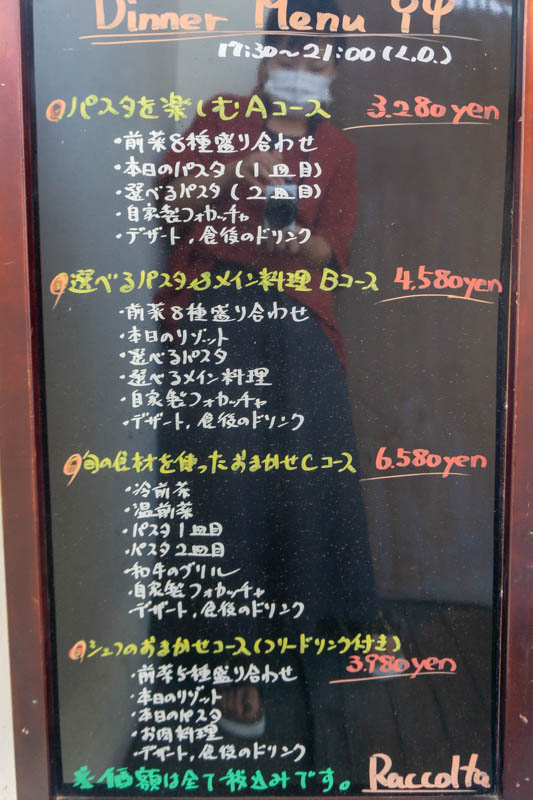 Dinner Menu
17:30～21:00(L.O.)
パスタを楽しむAコース 3.280yen
・前菜8種盛り合わせ
・本日のパスタ(1皿目)
・選べるパスタ(2皿目)
・自家製フォカッチャ
・デザート,食後のドリンク
選べるパスタ&メイン料理 Bコース 4.580yen
・前菜8種盛り合わせ
・本日のリゾット
・選べるパスタ
・選べるメイン料理
・自家製フォカッチャ
・デザート,食後のドリンク
旬の食材を使ったおまかせCコース 6.580yen
・冷前菜
・温前菜
・パスタ1皿目
・パスタ2皿目
・和牛のグリル
・自家製フォカッチャ
・デザート,食後のドリンク
シェフのおまかせコース(フリードリンク付き)
3.980yen
・前菜5種盛り合わせ
・本日のリゾット
・本日のパスタ
・お肉料理
・デザート,食後のドリンク
※価額は全て税込みです。 Raccolta